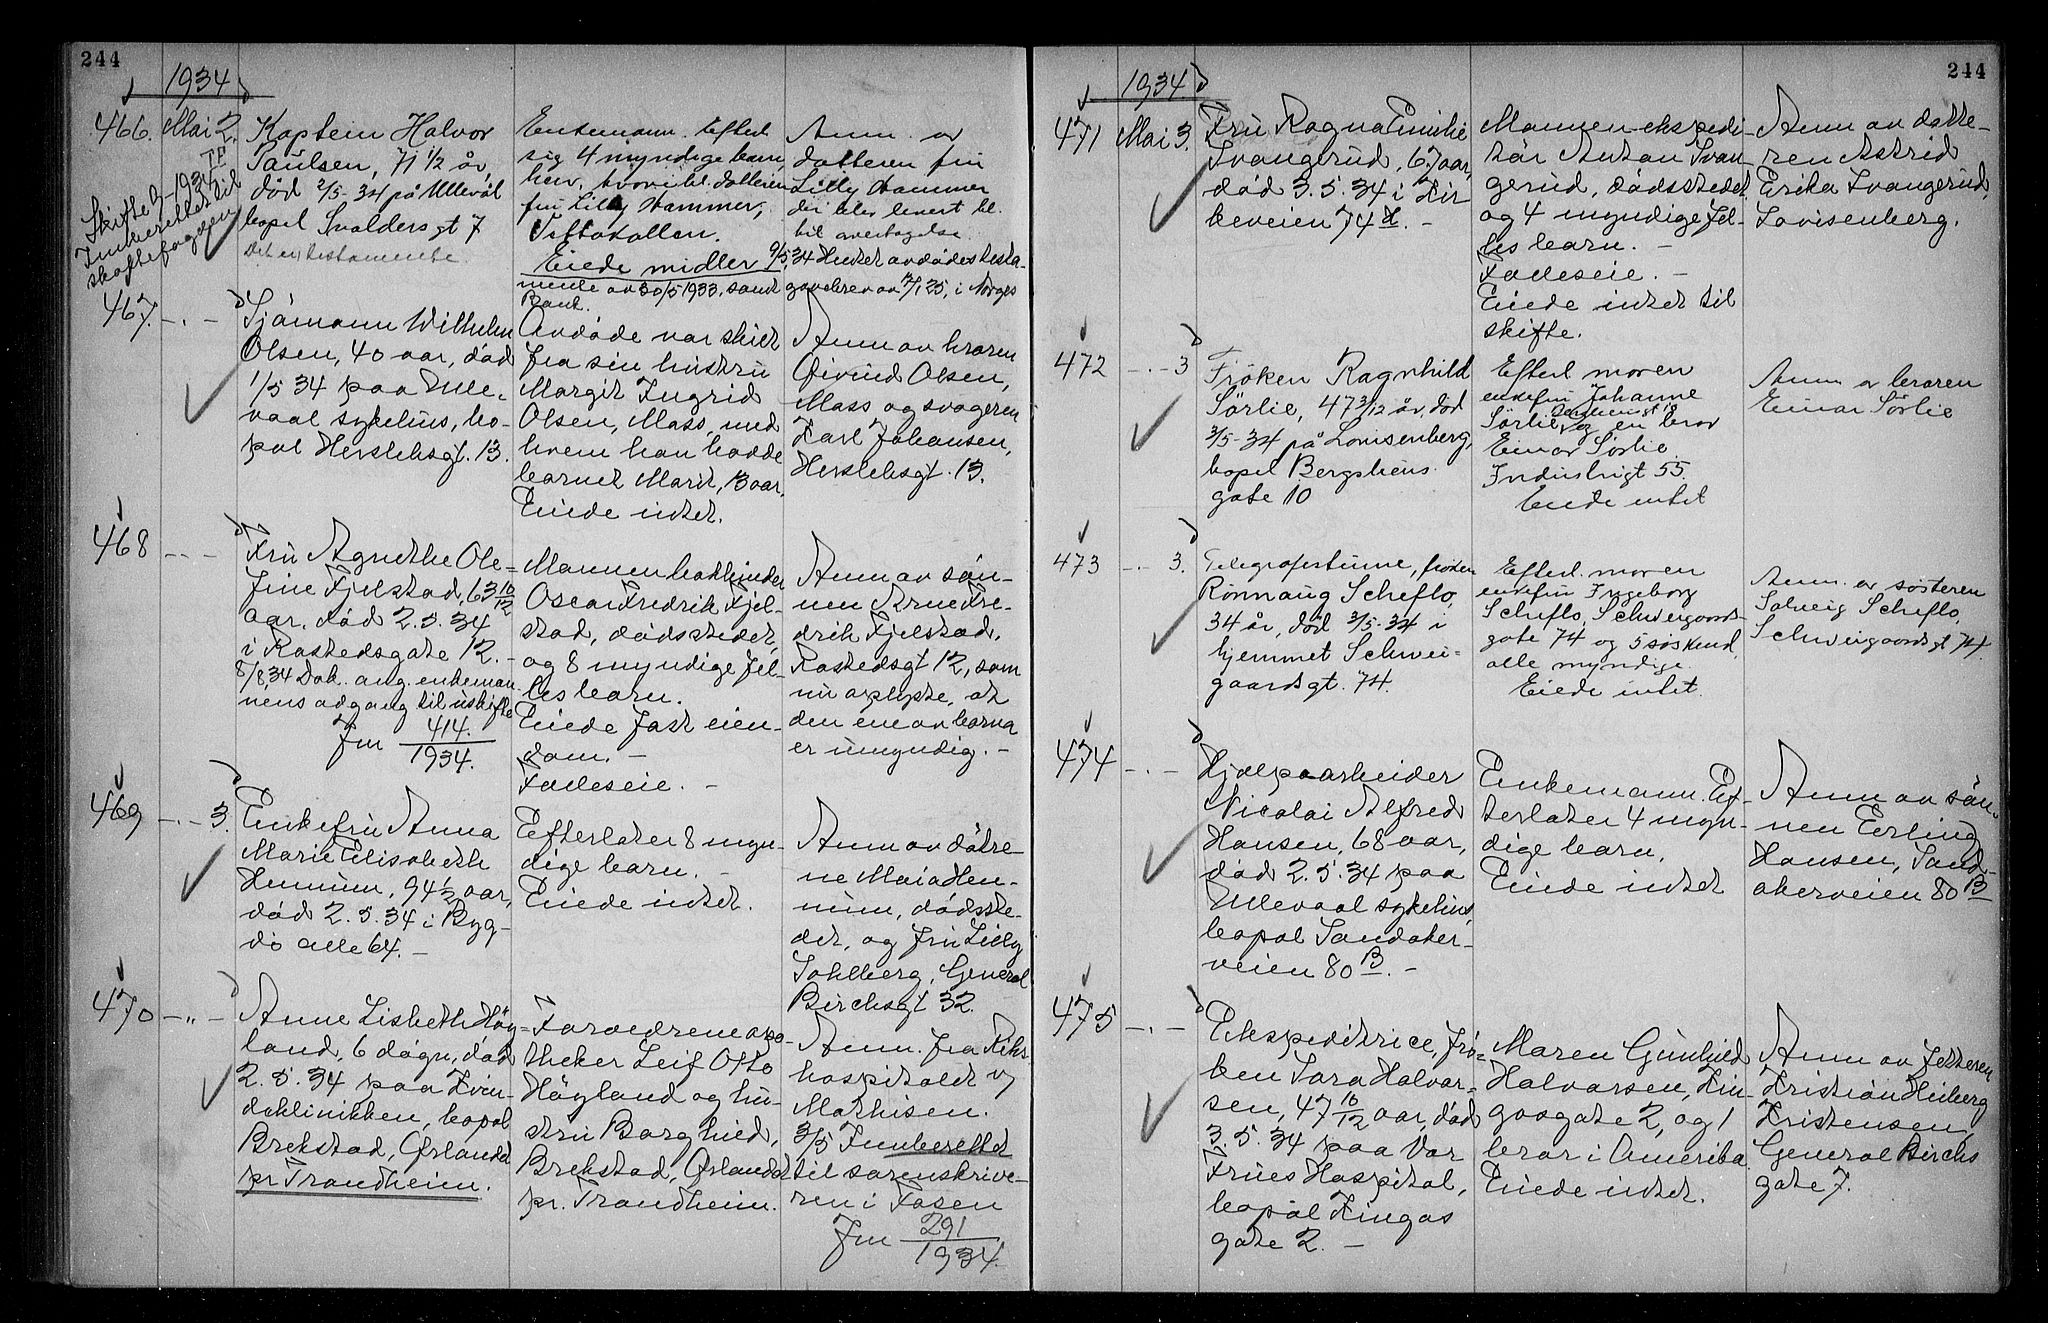 244
1934
466. Mai 2.
Kaptein Halvor
Paulsen, 71 1/2 år,
död 2/5-34 på Ullevål
bopel Svoldersgt 7
Det er testamente.
Skifte 1934
Innberettet til
skattefogden
Enkemann. Efterl.
sig 4 myndige barn
hvoribl. datteren
fru Lilly Hammer,
Eiede midler
Anm. av
datteren fru
Lilly Hammer
der blev levert bl.
til avertagelse.
9/5 34 Hentet avdödes testa-
mente av 30/5 1933, samt gavebrev av 25, i Norges
Bank.
467. - " -
Sjömann Wilhelm
Olsen, 40 aar, död
1/5 34 paa Ulle-
vaal sykehus, bo-
pæl Herslebsgt. 13.
Avdöde var skilt
fra sin hustru
Margit Ingrid
Olsen, Moss, med
hvem han hadde
barnet Marit, 13 aar.
Eiede intet.
Anm av broren
Øivind Olsen,
Moss og svogeren
Karl Johansen,
Herslebsgt. 13.
468 - " -
Fru Agnethe Ole-
fine Fjelstad, 63 10/12
aar, död 2.5.34
i Rostedsgate 12. -
8/8 34 Dok. ang. enkeman-
nens adgang til uskifte
Jnr 414.
1934.
Mannen bokbinder
Oscar Fredrik Fjel-
stad, dödsstedet,
og 8 myndige fel-
les barn.
Eiede fast eien-
dom. -
Fælleseie. -
Anm av søn-
nen Arne Fre-
drik Fjelstad,
Rostedsgt 12, som
nu oplyste, at
den ene av barna
er umyndig. -
469 - " - 3.
Enkefru Anna
Marie Elisabeth
Hennum, 94 1/2 aar,
död 2.5.34 i Byg-
dö alle 64. -
Efterlater 8 myn-
dige barn. -
Eiede intet.
Anm av døtre-
ne Maia Hen-
num, dödsste-
det, og fru Lilly
Sohlberg, General
Birchsgt 32.
470 - " -
Anne Lisbeth Höy-
land, 6 dögn, död
2.5.34 paa Kvin-
deklinikken, bopæl
Brekstad, Ørlandet
pr Trondheim.
Forældrene apo-
theker Leif Otto
Höyland og hu-
stru Borghild,
Brekstad, Ørlandet
pr. Trondheim.
Anm. fra Riks-
hospitalet v/
Mathisen.
3/5 Innberettet
til sorenskrive-
ren i Fosen
Jnr 291
1934.
244
1934.
471 Mai 3.
Fru Ragna Emilie
Svangerud, 67 aar,
död 3.5.34 i Kir
keveien 74 H. -
Mannen ekspedi-
tør Anton Svan-
gerud, dödsstedet,
og 4 myndige fel-
les barn. -
Fælleseie. -
Eiede intet til
skifte.
Anm av datte-
ren Astrid
Erika Svangerud,
Lovisenberg.
472 - " - 3
Fröken Ragnhild
Sörlie, 47 3/12 år, död
3/5-34 på Lovisenberg,
bopel Bergsliens
gate 10
Efterl. moren
enkefru Johanne
Sörlie, og en bror
Einar Sörlie
Industrigt 55.
Eiede intet
Anm av broren
Einar Sörlie
473 - " - 3.
Telegrafistinne, fröken
Rönnaug Scheflo,
34 år, död 3/5-34 i
hjemmet Schwei-
gaardsgt. 74.
Efterl. moren
enkefru Ingeborg
Scheflo, Schweigaards-
gate 74 og 5 söskend,
alle myndige.
Eiede intet.
Anm. av søsteren
Solveig Scheflo,
Schweigaardsgt 74.
474 - " -
Hjælpearbeider
Nicolai Alfred
Hansen, 68 aar,
död 2.5.34 paa
Ullevaal sykehus,
bopæl Sandaker-
veien 80 B. -
Enkemann. Ef-
terlater 4 myn-
dige barn.
Eiede intet
Anm av søn-
nen Erling
Hansen, Sand-
akerveien 80 B
475 - " -
Ekspeditrice, frö-
ken Sara Halvor-
sen, 47 10/12 aar, död
3.5.34 paa Vor
Frues Hospital,
bopæl Kingos
gate 2. -
Maren Gunhild
Halvorsen, Kin-
gosgate 2, og 1
bror i Amerika.
Eiede intet.
Anm av fetteren
Kristian Heiberg
Kristensen,
General Birchs
gate 7.